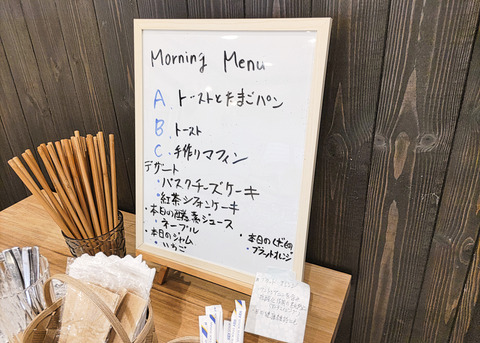 Morning Menu
A. トーストとたまごパン
B. トースト
C. 手作りマフィン
デザート
・バスクチーズケーキ
・紅茶シフォンケーキ
・本日の酵素ジュース
・ネーブル
・本日のジャム
・いちご
・本日のくだもの
・ブラッドオレンジ